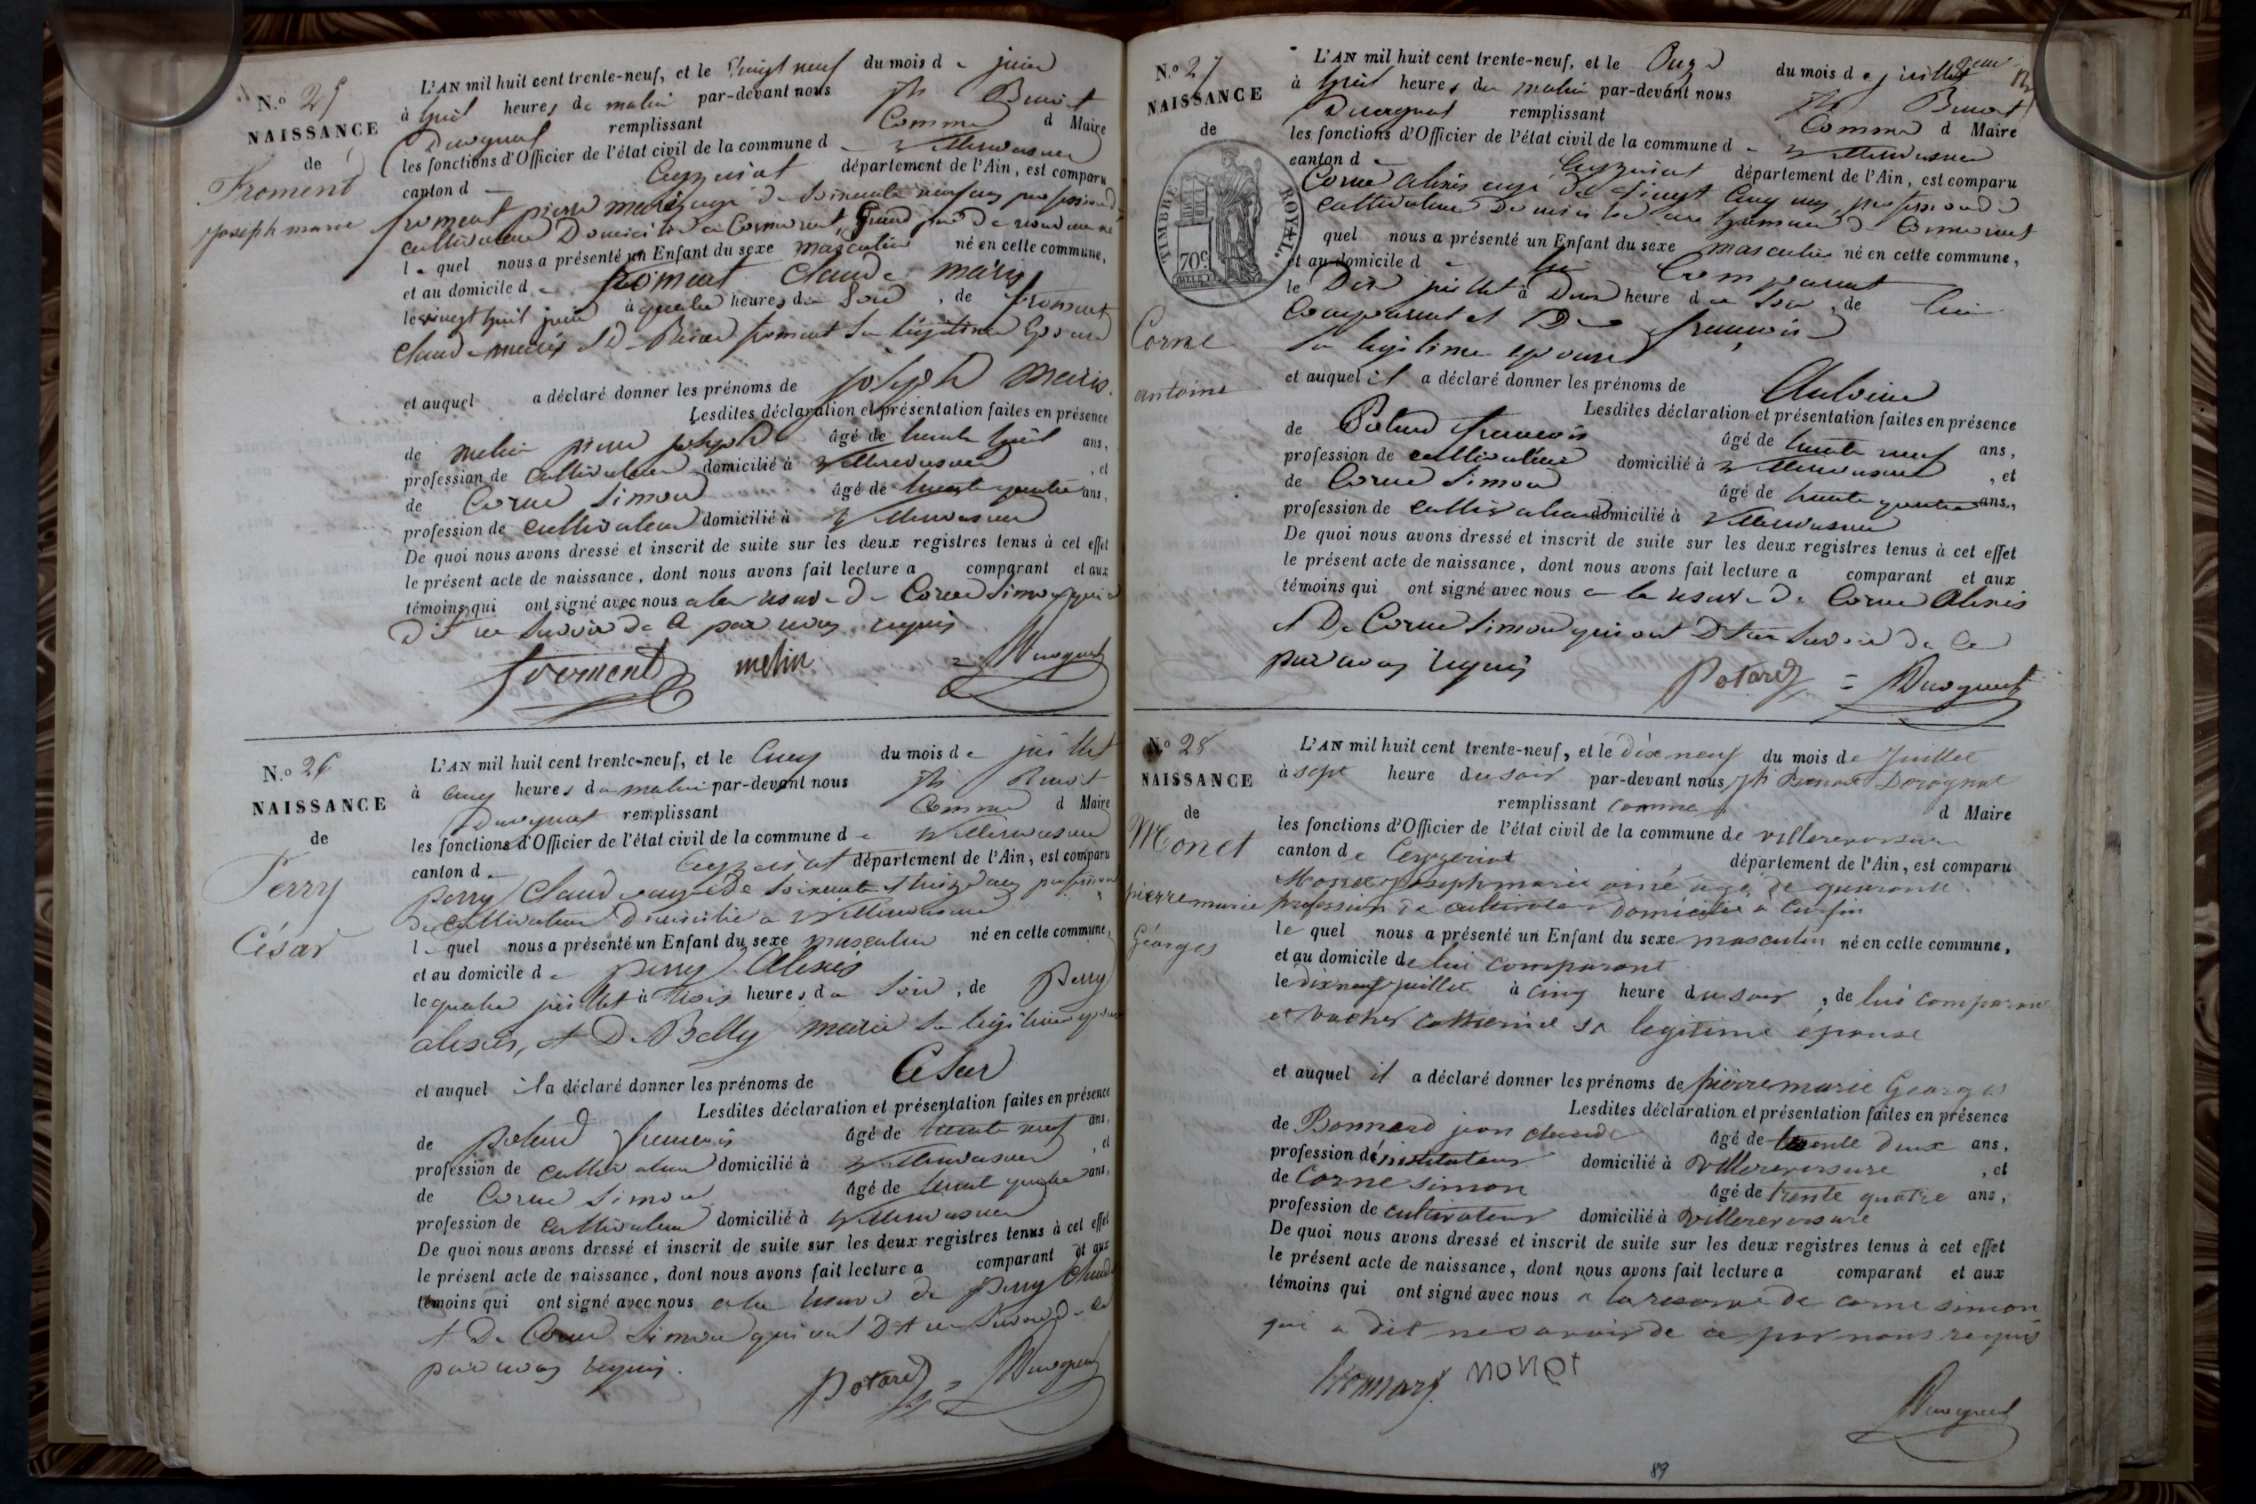 N.o 25
NAISSANCE
de
Froment
joseph marie
L'AN mil huit cent trente-neuf, et le vingt neuf du mois de juin
à huit heures du matin par-devant nous Jh Benoit
remplissant Comme d Maire
les fonctions d'Officier de l'état civil de la commune de Villereversure
canton de Ceyzeriat département de l'Ain, est comparu
froment pierre marie agé de soixante neuf ans profession de
cultivateur Domicilié à Cormorent, Grand père
le quel nous a présenté un Enfant du sexe masculin né en cette commune,
et au domicile de froment Claude marie
le vingt huit juin à quatre heures du soir, de froment
Claude marie et de froment sa légitime Epouse
et auquel a déclaré donner les prénoms de joseph marie.
Lesdites déclaration et présentation faites en présence
de melin pierre joseph âgé de trente huit ans,
profession de cultivateur domicilié à Villereversure, et
de Corne Simon âgé de trente quatre ans,
profession de cultivateur domicilié à Villereversure
De quoi nous avons dressé et inscrit de suite sur les deux registres tenus à cet effet
le présent acte de naissance, dont nous avons fait lecture a comparant et aux
témoins qui ont signé avec nous a la reserve de Corne Simon qui a
Dit ne savoir de Ce par nous requis
froment melin
N.o 26
NAISSANCE
de
Perry
César
L'AN mil huit cent trente-neuf, et le Cinq du mois de juillet
à cinq heures du matin par-devant nous Jh Benoit
remplissant Comme d Maire
les fonctions d'Officier de l'état civil de la commune de Villereversure
canton de Ceyzeriat département de l'Ain, est comparu
perry Claude agé de soixante treize ans profession
de cultivateur Domicilié à Villereversure
le quel nous a présenté un Enfant du sexe masculin né en cette commune,
et au domicile de perry Alexis
le quatre juillet à trois heures du soir, de Perry
alexis, et De Belly marie sa légitime épouse
et auquel il a déclaré donner les prénoms de César
Lesdites déclaration et présentation faites en présence
de potard francois âgé de trente neuf ans,
profession de cultivateur domicilié à Villereversure, et
de Corne Simon âgé de trente quatre ans,
profession de cultivateur domicilié à Villereversure
De quoi nous avons dressé et inscrit de suite sur les deux registres tenus à cet effet
le présent acte de naissance, dont nous avons fait lecture a comparant et aux
témoins qui ont signé avec nous a la reserve de perry Claude
et De Corne Simon qui ont Dit ne savoir de Ce
par nous requis.
potard
N.o 27
NAISSANCE
de
TIMBRE ROYAL.
70c
Corne
antoine
L'AN mil huit cent trente-neuf, et le Onze du mois de juillet
à huit heures du matin par-devant nous Jh Benoit
remplissant Comme d Maire
les fonctions d'Officier de l'état civil de la commune de Villereversure
canton de Ceyzeriat département de l'Ain, est comparu
Corne alexis agé de vingt Cinq ans, profession de
cultivateur Domicilié au hameau de Cormorent
quel nous a présenté un Enfant du sexe masculin né en cette commune,
et au domicile de lui Comparant
le Dix juillet à Deux heure du soir, de lui
Comparant et De francoise
sa légitime épouse
et auquel il a déclaré donner les prénoms de Antoine
Lesdites déclaration et présentation faites en présence
de Potard francois âgé de trente neuf ans,
profession de cultivateur domicilié à Villereversure, et
de Corne Simon âgé de trente quatre ans,
profession de cultivateur domicilié à Villereversure
De quoi nous avons dressé et inscrit de suite sur les deux registres tenus à cet effet
le présent acte de naissance, dont nous avons fait lecture a comparant et aux
témoins qui ont signé avec nous a la reserve de Corne Alexis
et De Corne Simon qui ont Dit ne savoir de Ce
par nous requis
Potard
N.o 28
NAISSANCE
de
Monet
pierre marie
Géorges
L'AN mil huit cent trente-neuf, et le dix neuf du mois de Juillet
à sept heure du soir par-devant nous Jh Benoit
remplissant comme d Maire
les fonctions d'Officier de l'état civil de la commune de villereversure
canton de Ceyzeriat département de l'Ain, est comparu
Monet joseph marie ainé agé de quarante
profession de cultivateur domicilié à
le quel nous a présenté un Enfant du sexe masculin né en cette commune,
et au domicile de lui comparant
le dix neuf juillet à cinq heure du soir, de lui comparant
et vacher catherine sa legitime épouse
et auquel il a déclaré donner les prénoms de pierre marie Georges
Lesdites déclaration et présentation faites en présence
de Bonnard jean claude âgé de trente deux ans,
profession de instituteur domicilié à Villereversure, et
de Corne simon âgé de trente quatre ans,
profession de cultivateur domicilié à Villereversure
De quoi nous avons dressé et inscrit de suite sur les deux registres tenus à cet effet
le présent acte de naissance, dont nous avons fait lecture a comparant et aux
témoins qui ont signé avec nous a la reserve de corne simon
qui a dit ne savoir de ce par nous requis
Bonnard monet
89